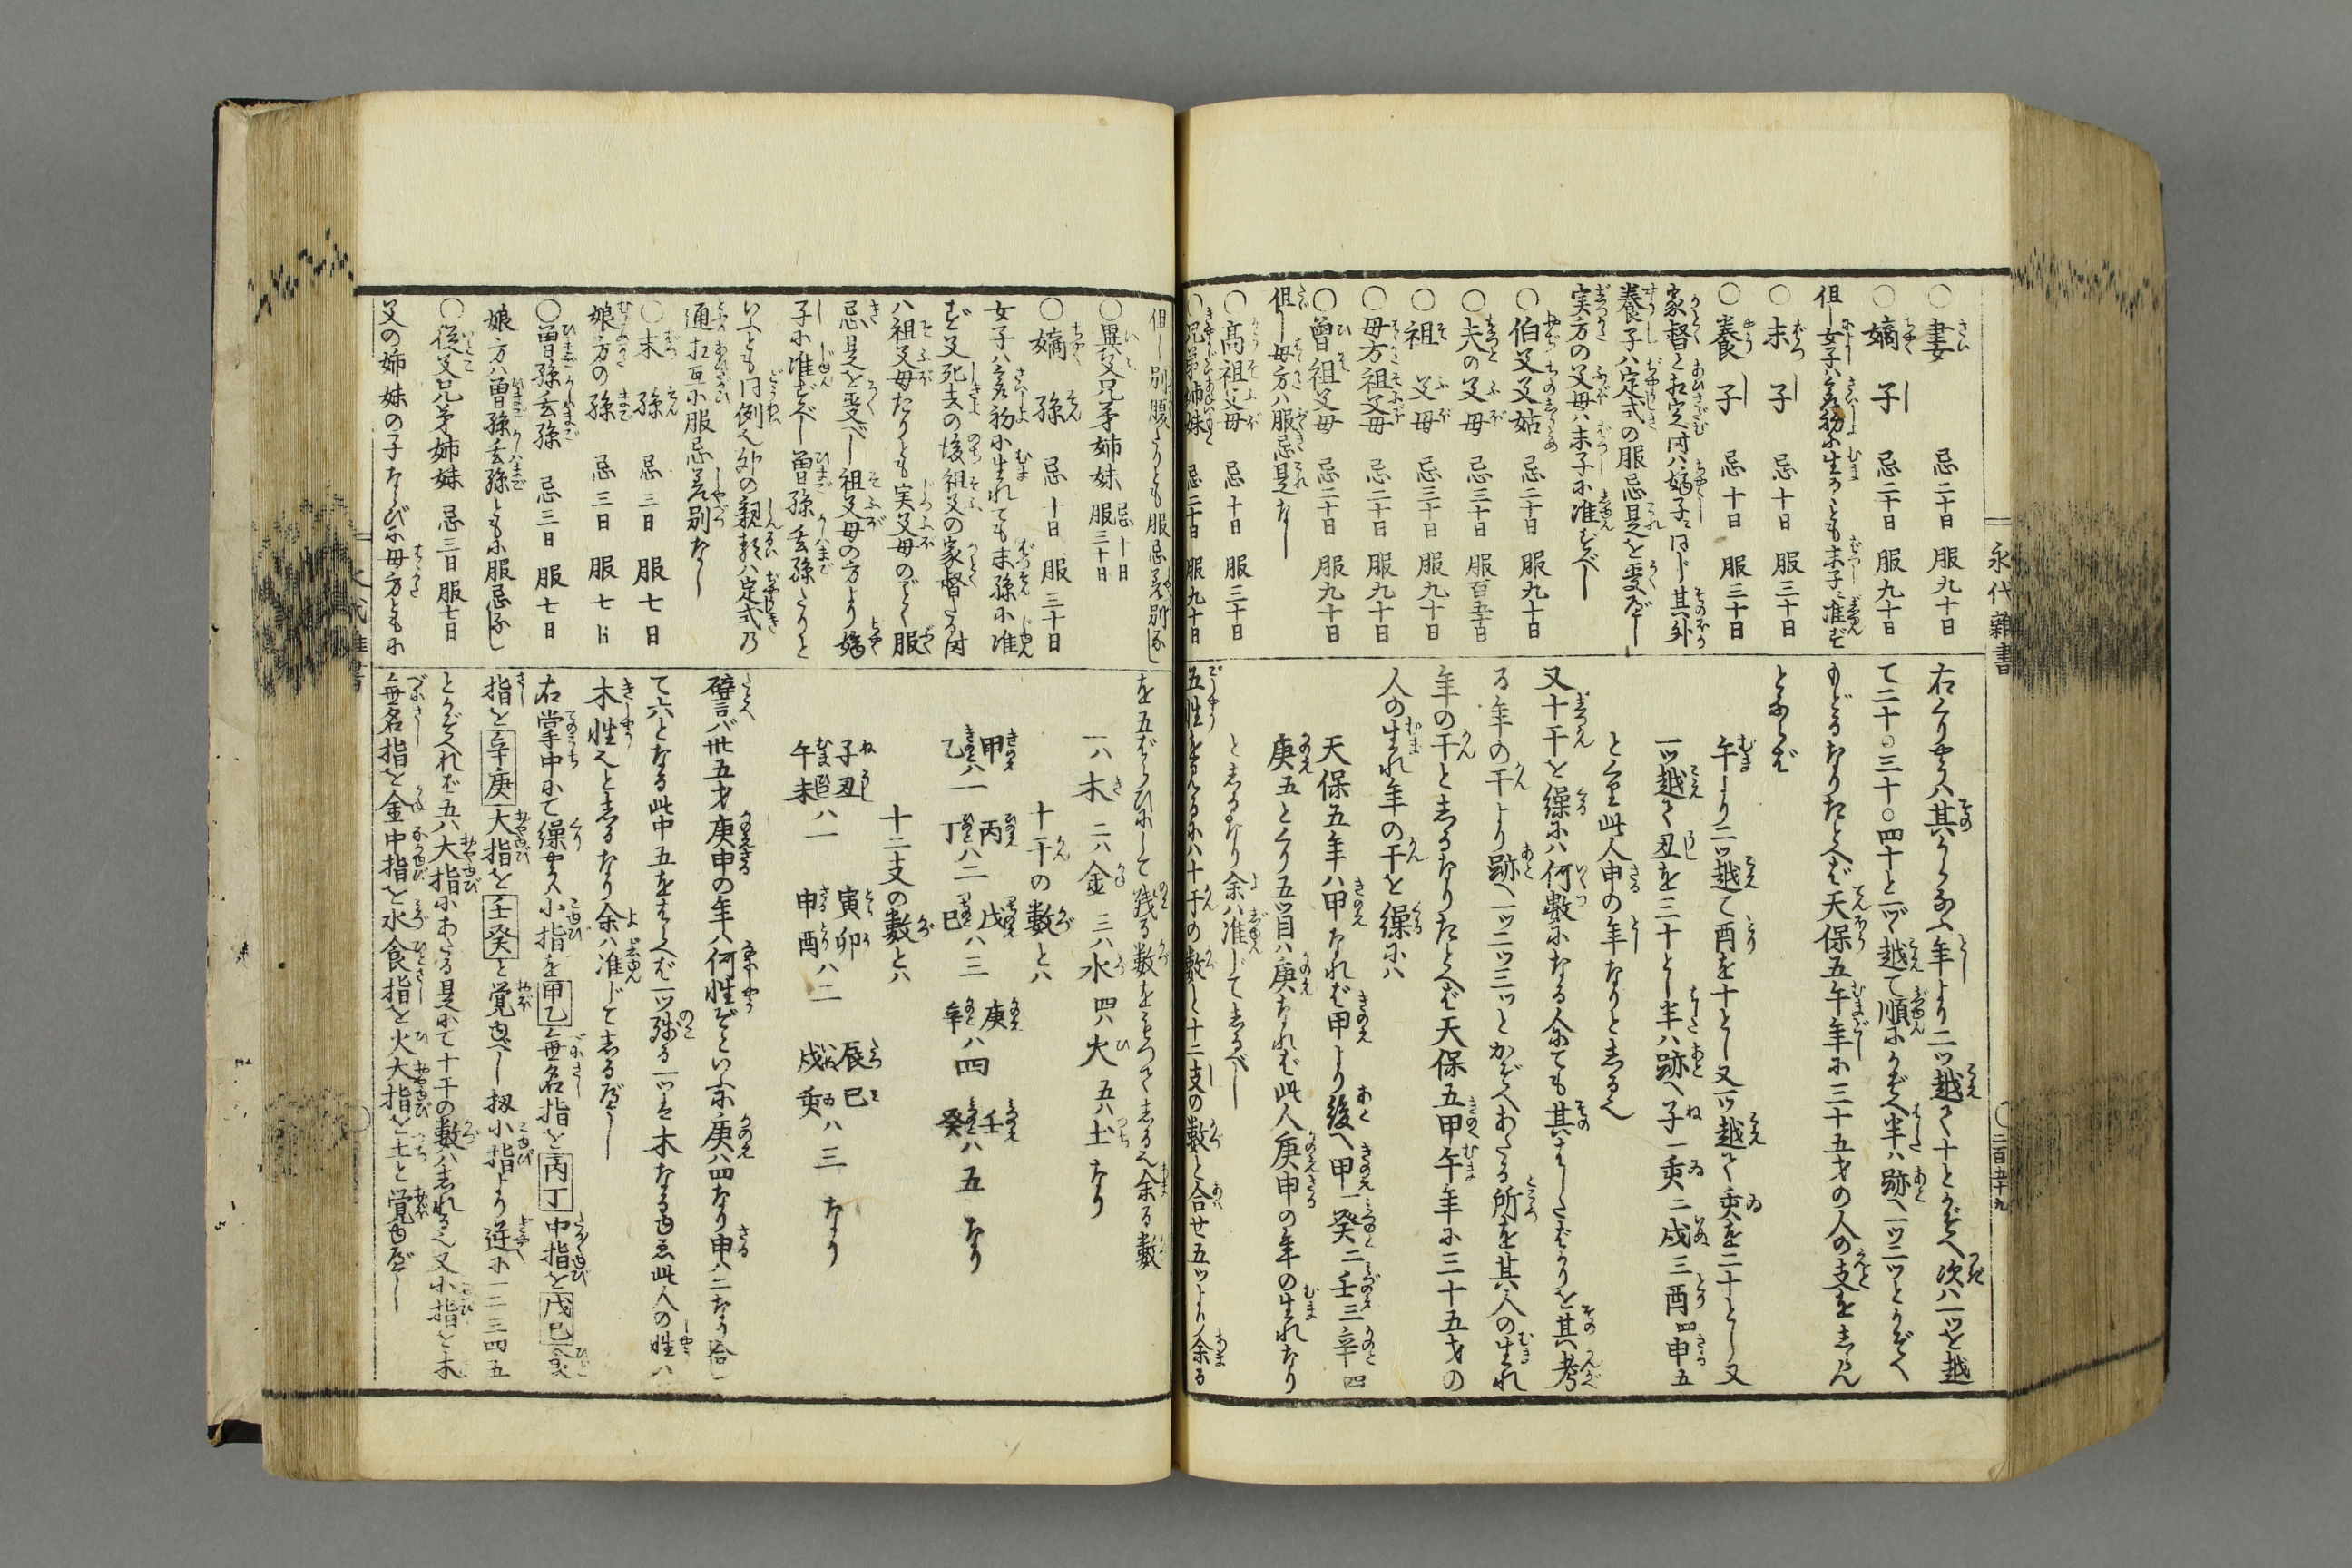 永代雜書
二百五十九
○妻 忌二十日 服九十日
○嫡子 忌二十日 服九十日
但し女子ハ最初に生るゝとも末子に准ず
○末子 忌十日 服三十日
○養子 忌十日 服三十日
家督と相定る時ハ嫡子に同じ其外
養子ハ定式の服忌是を受べし
実方の父母ハ末子に准ずべし
○伯父父姑 忌二十日 服九十日
○夫の父母 忌三十日 服百五十日
○祖父母 忌三十日 服九十日
○母方祖父母 忌二十日 服九十日
○曽祖父母 忌二十日 服九十日
但し母方ハ服忌是なし
○高祖父母 忌十日 服三十日
○兄弟姉妹 忌二十日 服九十日
右くり
て二十○三十○四十と一ツヅ越て順にかぞへ半ハ跡へ一ツ二ツとかぞへ
もどるなりたとへば天保五午年に三十五才の人の支を志らん
とならば
午より二ツ越て酉を十とし又一ツ越て亥を二十とし又
一ツ越て丑を三十とし半ハ跡へ子一亥二戌三酉四申五
此人申の年なりと志るべ
又十干を繰にハ何數になる人にても其はしたばかりを其考
る年の干より跡へ一ツ二ツ三ツとかぞへあたる所を其人の生れ
年の干と志るなりたとへば天保五甲午年に三十五才の
人の生れ年の干を繰にハ
天保五年ハ甲なれば甲より後へ甲一癸二壬三辛四
庚五とくり五ツ目ハ庚なれば此人庚申の年の生れなり
と志るなり余ハ准じて志るべし
五性を志るにハ十干の數と十二支の數と合せ五ツより余る
但し別腹たりとも服忌差別なし
○異父兄弟姉妹 忌十日 服三十日
○嫡孫 忌十日 服三十日
女子ハ最初に生れても末孫に准
ず父死去の後祖父の家督たる時
ハ祖父母たりとも実父母のごとく服
忌是を受べし祖父母の方より嫡
子に准ずべし曽孫玄孫たりと
いへども同例也外の親類ハ定式の
通相互に服忌差別なし
○末孫 忌三日 服七日
娘方の孫 忌三日 服七日
○曽孫玄孫 忌三日 服七日
娘方ハ曽孫玄孫ともに服忌なし
○従父兄弟姉妹 忌三日 服七日
父の姉妹の子ならびに母方ともに
を五ばらひにして残る數をもつて志るべ余る數
一ハ木 二ハ金 三ハ水 四ハ火 五ハ土なり
十干の數とハ
甲乙ハ一 丙丁ハ二 戊己ハ三 庚辛ハ四 壬癸ハ五なり
十二支の數とハ
子丑午未ハ一 寅卯申酉ハ二 辰巳戌亥ハ三なり
譬言バ卅五才庚申の年ハ何性ぞといふに庚ハ四なり申ハ二なり合し
て六となる此中五をはらへば一ツ残る一ツは木なるゆゑ此人の性ハ
木性也と志るなり余ハ准じて志るべし
右掌中にて繰やうハ小指を甲乙無名指を丙丁中指を戊己
指を辛庚大指を壬癸と覚ゆべし扨小指より逆に一二三四五
とかぞへれば五ハ大指にあたる是にて十干の數ハ志れる也又小指を木
無名指を金中指を水食指を火大指を土と覚ゆべし